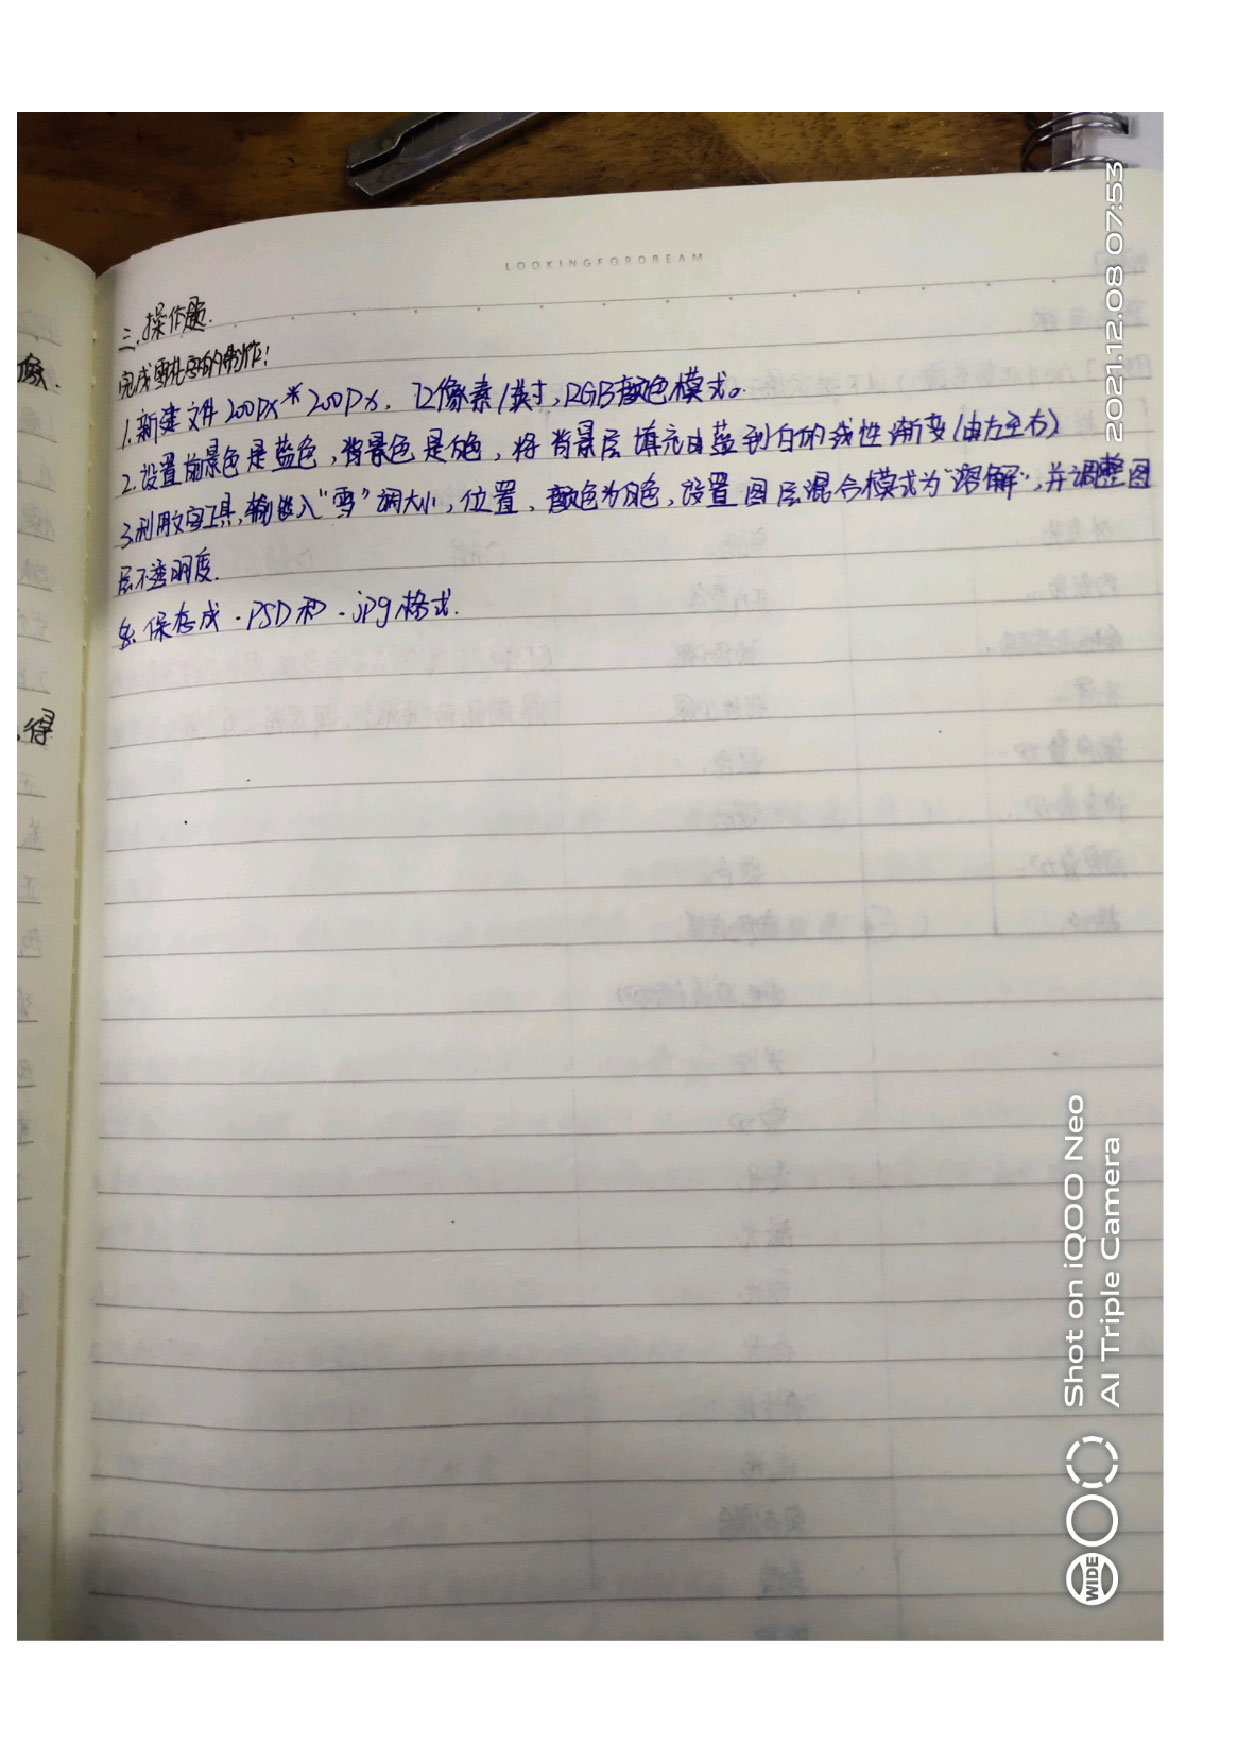 LOOKINGFORDREAM
三.操作题.
完成雪花字的制作!
1.新建文件200px*200px, 72像素/英寸,RGB颜色模式。
2.设置前景色是蓝色,背景色是白色,将背景层填充由蓝到白的线性渐变(由左至右)
3.利用文字工具,输入"雪"调大小,位置、颜色为白色,设置图层混合模式为"溶解",并调整图
层不透明度.
保存成.PSD和.jpg格式.
得
2021.12.08 07:53
Shot on iQOO Neo
AI Triple Camera
WIDE